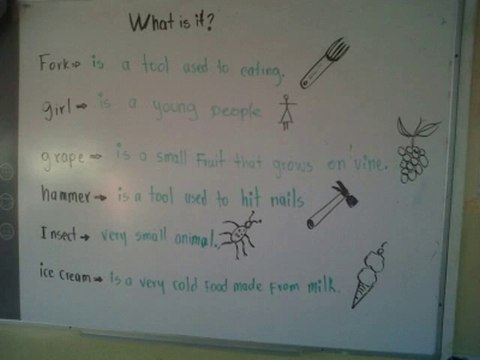 What is it?
Fork→ is a tool used to eating.
girl→ is a young people
grape→ is a small fruit that grows on vine.
hammer→ is a tool used to hit nails
Insect→ very small animal.
ice cream→ is a very cold food made from milk.